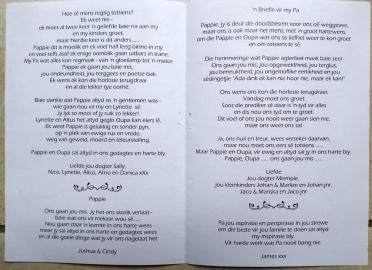 Hoe sê mens regtig totsiens?
Ek weet nie -
ek moes al twee keer 'n geliefde baie na aan my
en my kinders groet,
maar hierdie keer is dit anders......
Pappie dit is moeilik en ek voel half leeg binne-in my
en voel selfs asof ek enige oomblik gaan uitbars in trane.
My Pa wat alles kon regmaak - van 'n gloeilamp tot 'n motor.
Pappie ek gaan jou baie mis,
jou ondeundheid, jou terggees en poetse bak.
Ek wens ek kon die horlosie terugdraai
en al die lekker tye oorhê.
Baie dankie dat Pappie altyd so 'n gentleman was -
wie gaan nou vir my en Lynette sê:
Jy lyk so mooi of jy ruik so lekker!!
Lynette en Altus het altyd geglo Oupa kan eiers lê.
Ek weet Pappie is gelukkig en sonder pyn,
op 'n plek van ewige rus en vrede,
weg van geweld, moord en teleurstelling.
Pappie en Oupa sal altyd in ons gedagtes en harte bly.
Liefde jou dogter Sally,
Nico, Lynette, Altus, Arno en Danica xXx
Pappie
Ons gaan jou mis. Jy het ons skielik verlaat -
baie wat ons vir mekaar wou sê......
Nou gaan daar 'n leemte in ons harte wees
maar jy sal altyd in ons harte en gedagtes wees
en al die goeie dinge wat jy vir ons nagelaat het.
Joshua & Cindy
'n Briefie vir my Pa
Pappie, jy is deur die doodsbesem voor ons oë weggevee,
maar ons is ook maar net mens, met 'n groot hartewens,
om die Pappie en Oupa wat ons so liefhet weer te kon groet
en om totsiens te sê.
Die herinneringe wat Pappie agterlaat maak baie seer.
Ons gaan jou mis, jou opgewektheid, jou terglus,
jou bemeuktheid, jou ongelooflike eerlikheid en jou
sêdingetjie "Adio dink ek kan nie hoor nie, maar ek kan!"
Ons wens ons kon die horlosie terugdraai.
Vandag moet ons groet.
Soos die prediker sê daar is 'n tyd vir alles
en nie nou ons tyd om te groet.
Dit voel of ons jou nooit weer gaan sien nie,
maar ons weet ons sal.
Ja, ons huil en treur, wees verseker daarvan,
maar nou moet ons eers sê totsiens ......
Maar Pappie en Oupa, vir ewig en altyd sal jy in ons harte bly.
Pappie, Oupa ...... ons gaan jou mis ......
Liefde
Jou dogter Miempie,
jou kleinkinders Johan & Marlize en Johan jnr,
Jaco & Mariska en Jaco jnr
Pa jou aspirasie en perspirasie in jou strewe
om die beste vir jou familie te doen sal altyd
my inspirasie bly.
Vir harde werk was Pa nooit bang nie.
James xxx